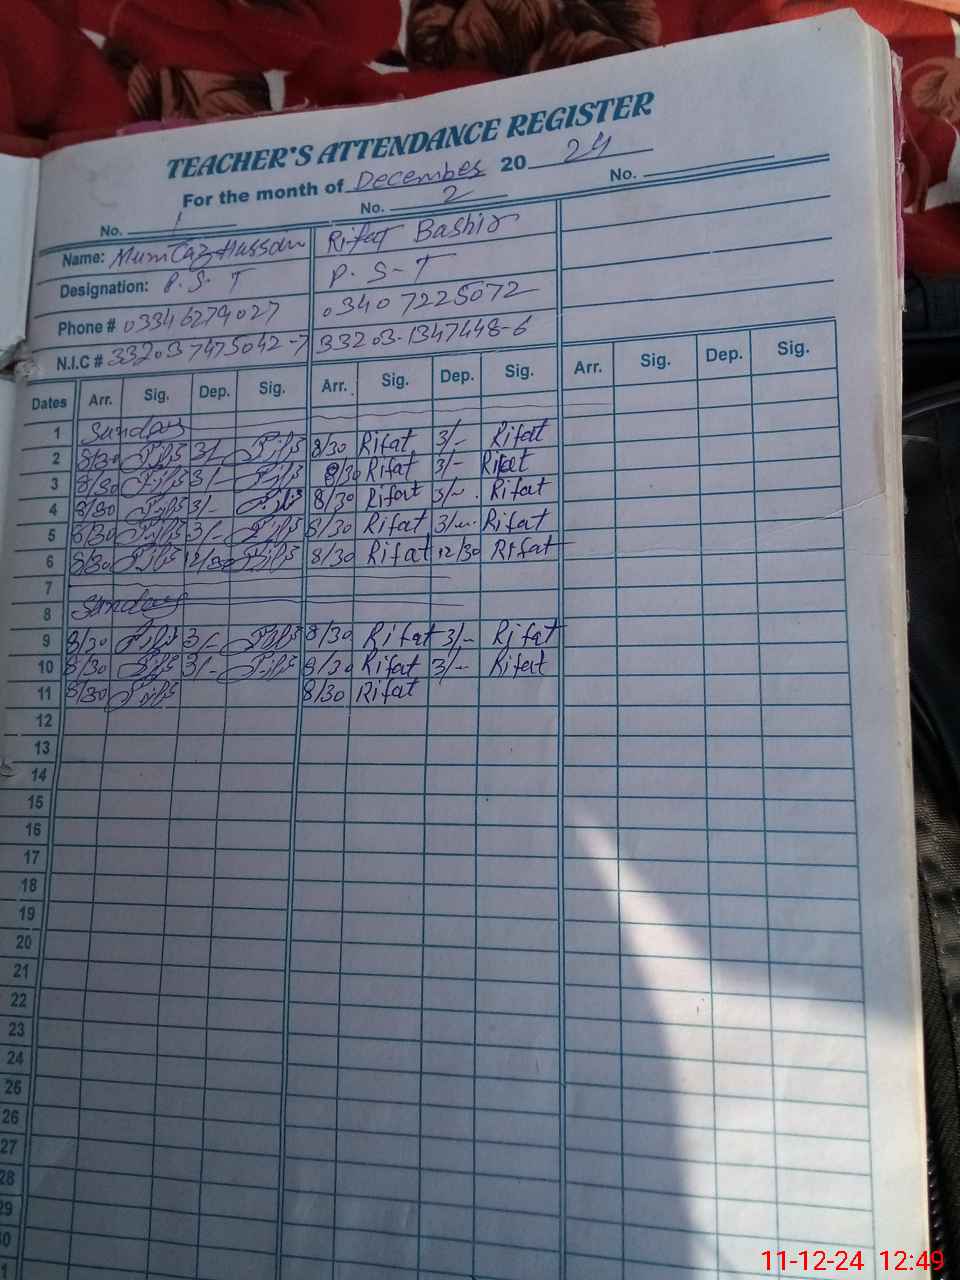 TEACHER'S ATTENDANCE REGISTER
For the month of December 20 24
No. 1 No. 2 No.
Name: Mumtaz Hussain Rifat Bashir
Designation: P.S.T P.S-T
Phone # 03346279027 0340 7225072
N.I.C # 33203 7475042-7 33203-1347448-6
Dates Arr. Sig. Dep. Sig. Arr. Sig. Dep. Sig. Arr. Sig. Dep. Sig.
1 Sunday
2 8/30 3/- 8/30 Rifat 3/- Rifat
3 8/30 3/- 8/30 Rifat 3/- Rifat
4 8/30 3/- 8/30 Rifat 3/- Rifat
5 8/30 3/- 8/30 Rifat 3/- Rifat
6 8/30 12/30 8/30 Rifat 12/30 Rifat
7
8 Sunday
9 8/30 3/- 8/30 Rifat 3/- Rifat
10 8/30 3/- 8/30 Rifat 3/- Rifat
11 8/30 8/30 Rifat
12
13
14
15
16
17
18
19
20
21
22
23
24
25
26
27
28
29
30
11-12-24 12:49